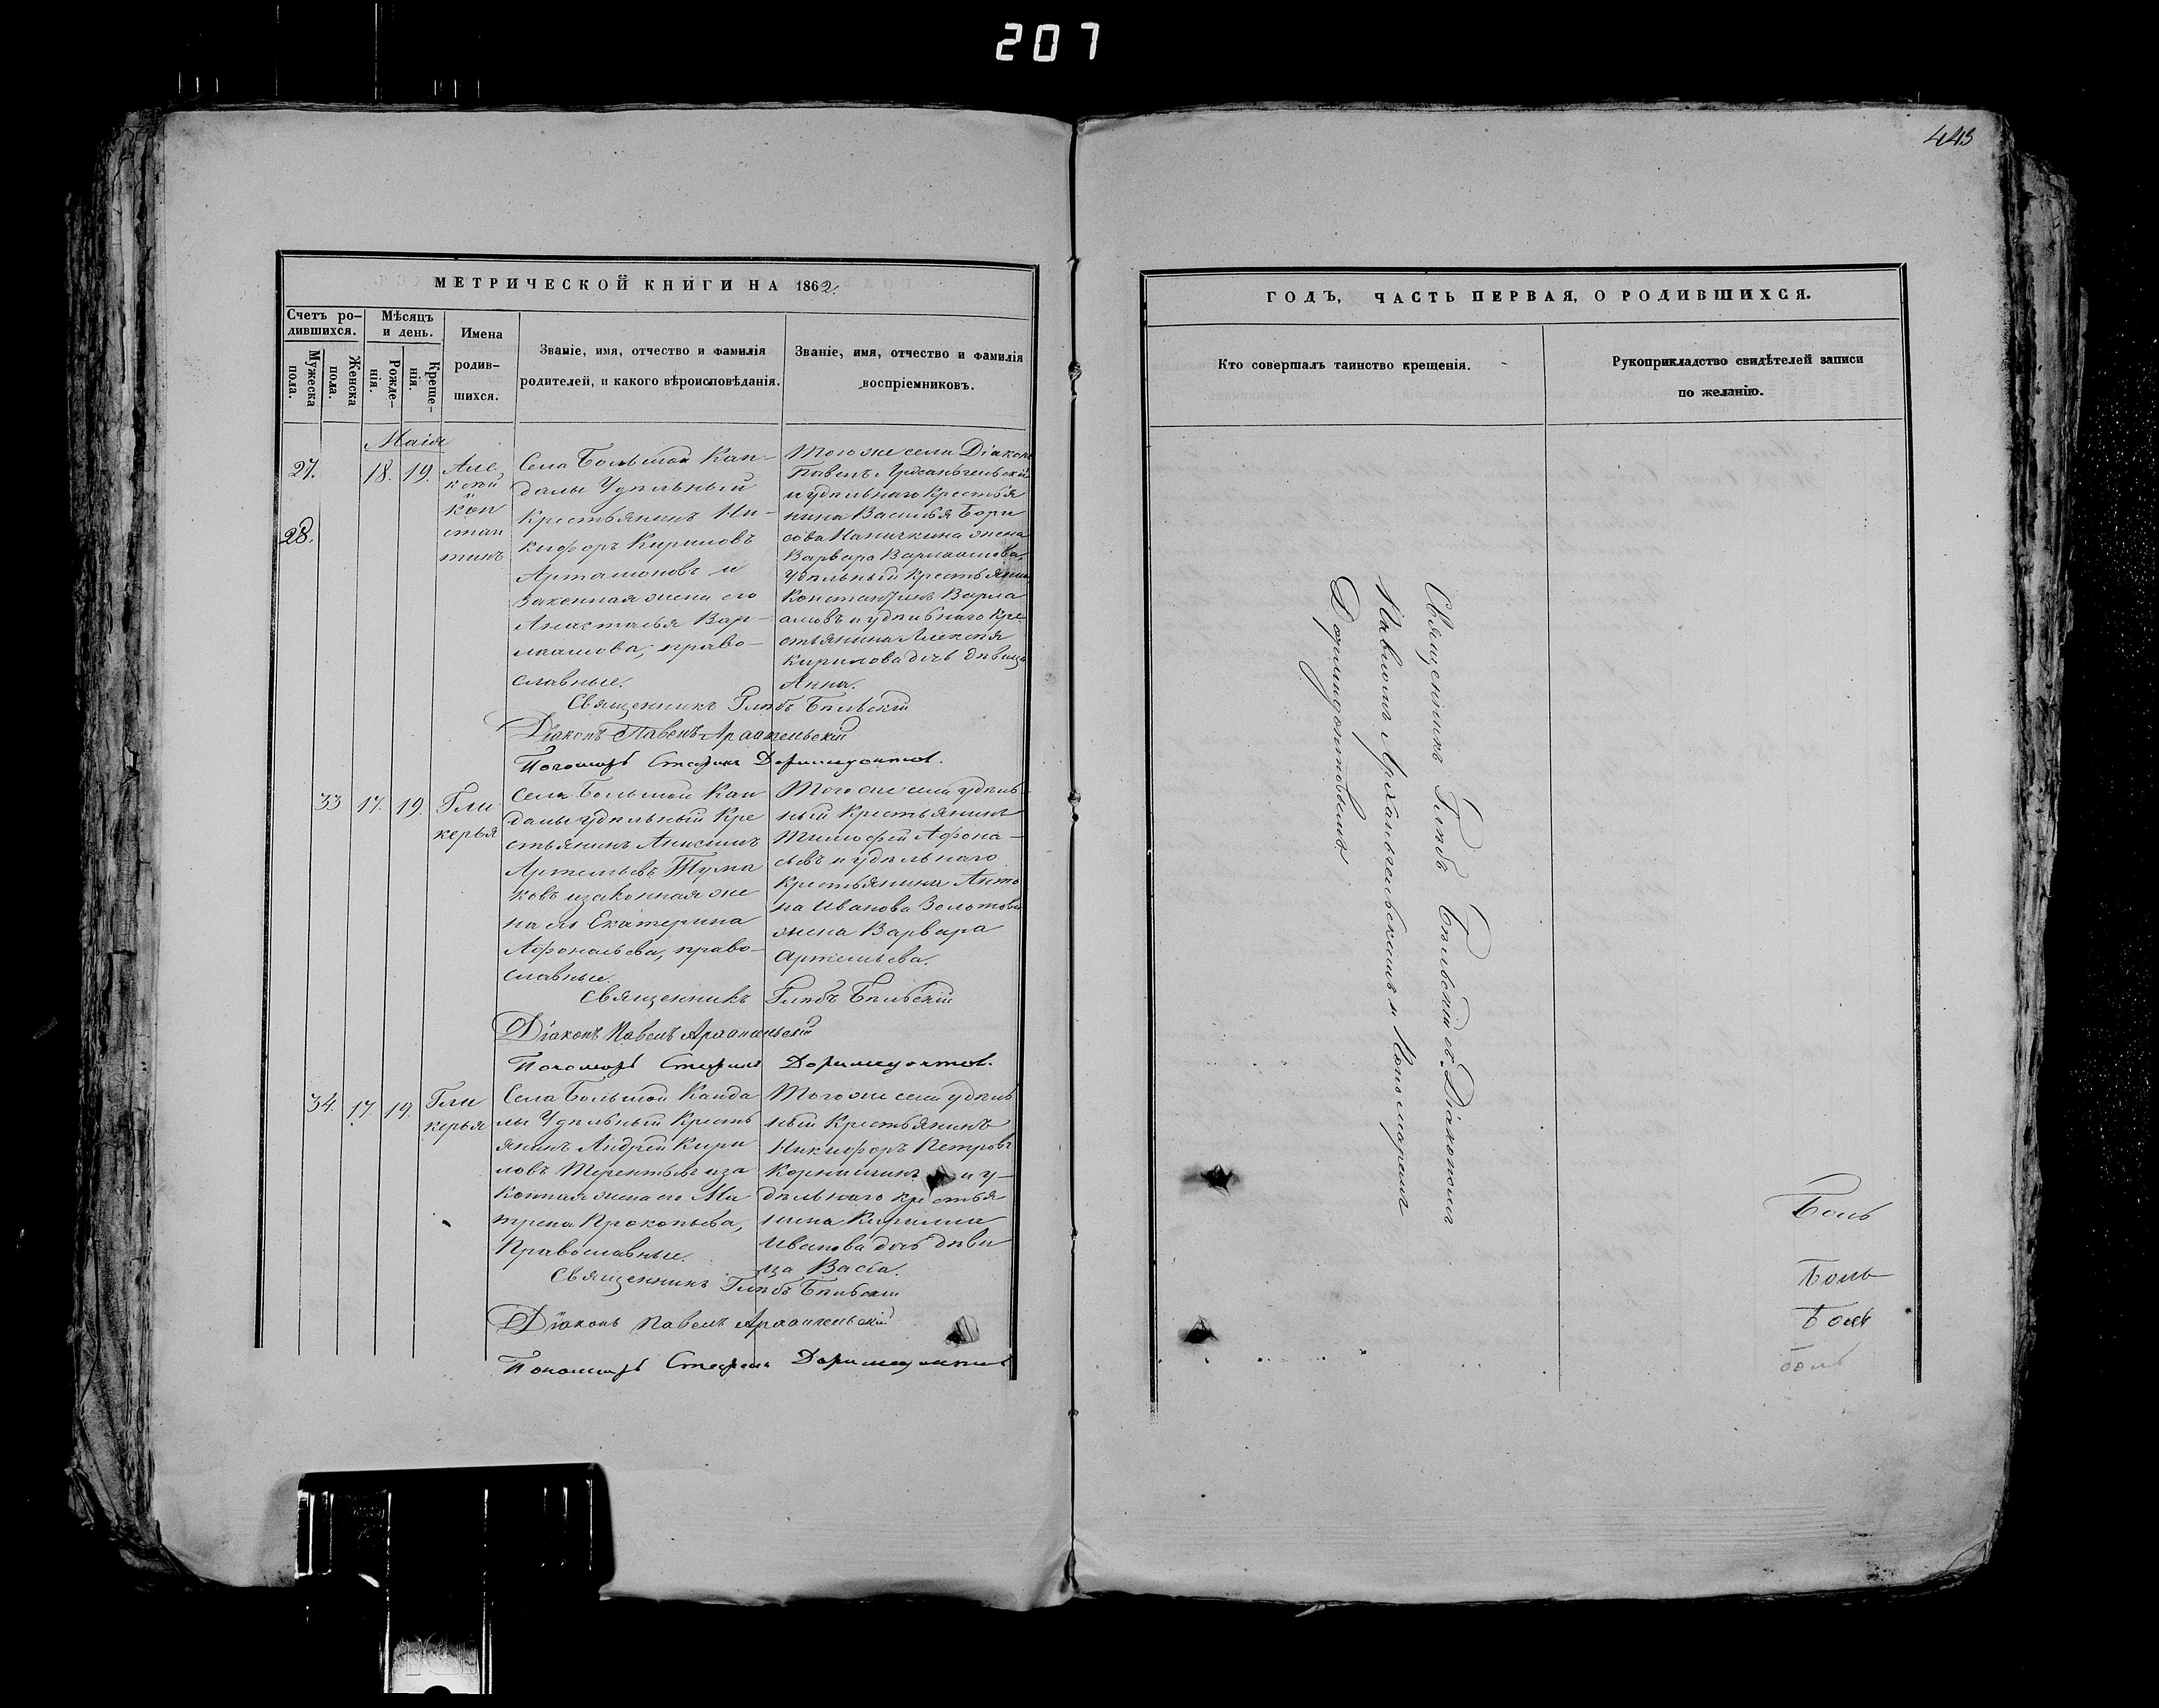 207
443
МЕТРИЧЕСКОЙ КНИГИ НА 1862.
Счетъ ро-
дившихся.
Мужеска
пола.
Женска
пола.
Мѣсяцъ
и день.
Рожде-
нія.
Креще-
нія.
Имена
родив-
шихся.
Званіе, имя, отчество и фамилія
родителей, и какого вѣроисповѣданія.
Званіе, имя, отчество и фамилія
воспріемниковъ.
Маія
27.
28.
18. 19.
Але
ксѣй
и
Кон
стан
тинъ
Села Большой Кан-
далы Удѣльный
Крестьянинъ Ни-
кифоръ Кириловъ
Артамоновъ и
Законная жена его
Анастасья Вар-
лаамова, право-
славные.
Того же села Діаконъ
Павелъ Архангельскій
и удѣльнаго Крестья
нина Василья Бори
сова жена
Варвара Варлаамова,
Удѣльный Крестьянинъ
Константинъ Варла
амовъ и удѣльнаго Кре
стьянина Алексѣя
Кирилова дочь дѣвица
Анна.
Священникъ Глѣбъ Бѣльскій
Діаконъ Павелъ Архангельскій
Пономарь Стефанъ Доримедонтовъ.
33 17. 19.
Гли
керья
Села Большой Кан
далы удѣльный Кре
стьянинъ Анисимъ
Артемьевъ Тума
ковъ и законная же
на его Екатерина
Афонасьева, право-
славные.
Того же села удѣль-
ный Крестьянинъ
Тимофей Афона-
сьевъ и удѣльнаго
Крестьянина Анто
на Иванова Золотова
жена Варвара
Артемьева.
Священникъ Глѣбъ Бѣльскій
Діаконъ Павелъ Архангельскій
Пономарь Стефанъ Доримедонтовъ.
34. 17. 19.
Гли
керья
Села Большой Канда
лы Удѣльный Кресть
янинъ Андрей Кири
ловъ Терентьевъ и за
конная жена его Ма
трена Прокопьева,
Православные.
Того же села удѣль
ный Крестьянинъ
Никифоръ Петровъ
Корнишинъ и у-
дѣльнаго крестья
нина Кирилла
Иванова дочь дѣви
ца Васса.
Священникъ Глѣбъ Бѣльскій
Діаконъ Павелъ Архангельскій
Пономарь Стефанъ Доримедонтовъ
ГОДЪ, ЧАСТЬ ПЕРВАЯ, О РОДИВШИХСЯ.
Кто совершалъ таинство крещенія.
Рукоприкладство свидѣтелей записи
по желанію.
Священникъ Глѣбъ Бѣльскій съ Діакономъ
Павломъ Архангельскимъ и Пономаремъ
Доримидонтовымъ
Боль
Боль
Боль
боль